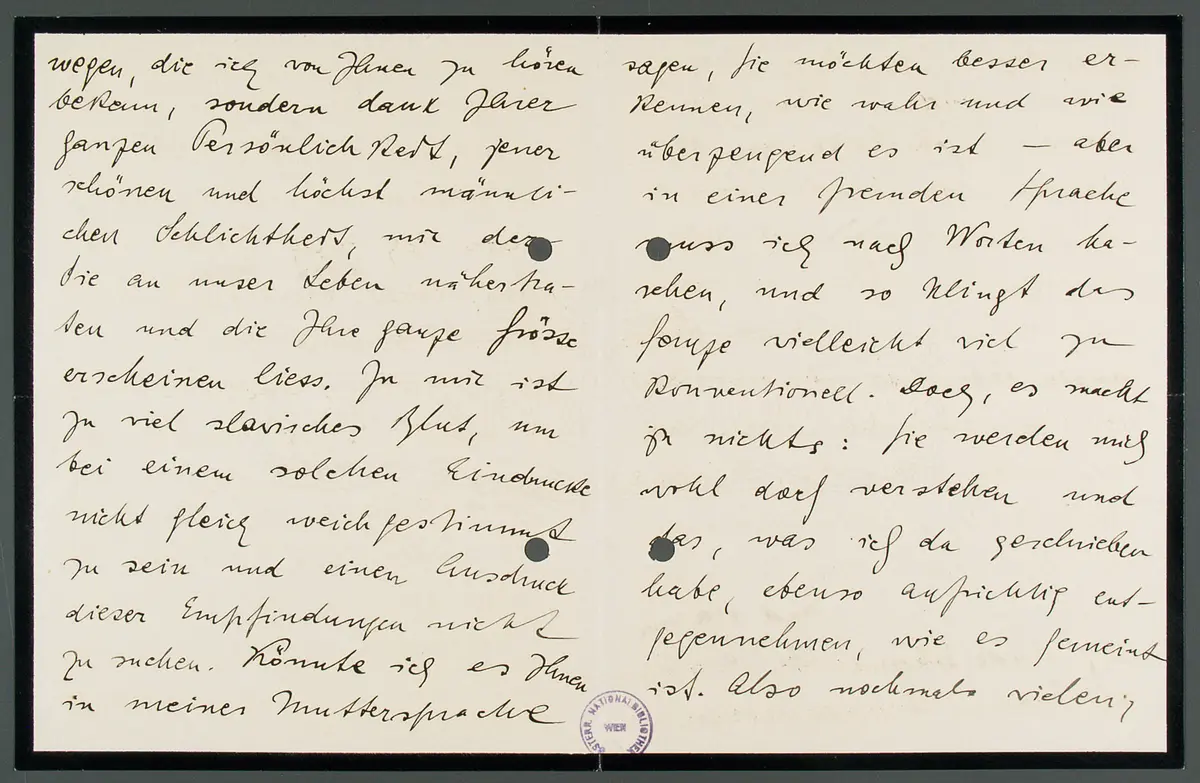 wegen, die ich von Ihnen zu hören
bekam, sondern dank Ihrer
ganzen Persönlichkeit, jener
schönen und höchst männli-
chen Schlichtheit, mit der
Sie an unser Leben nähertra-
ten und die Ihre ganze Grösse
erscheinen liess. In mir ist
zu viel slavisches Blut, um
bei einem solchen Eindrucke
nicht gleich weichgestimmt
zu sein und einen Ausdruck
dieser Empfindungen nicht
zu suchen. Könnte ich es Ihnen
in meiner Muttersprache
sagen, Sie möchten besser er-
kennen, wie wahr und wie
überzeugend es ist – aber
in einer fremden Sprache
muss ich nach Worten ha-
schen, und so klingt das
Ganze vielleicht viel zu
konventionell. Doch, es macht
ja nichts: Sie werden mich
wohl doch verstehen und
das, was ich da geschrieben
habe, ebenso aufrichtig ent-
gegennehmen, wie es gemeint
ist. Also nochmals vielen,
ÖSTERR. NATIONALBIBLIOTHEK
WIEN